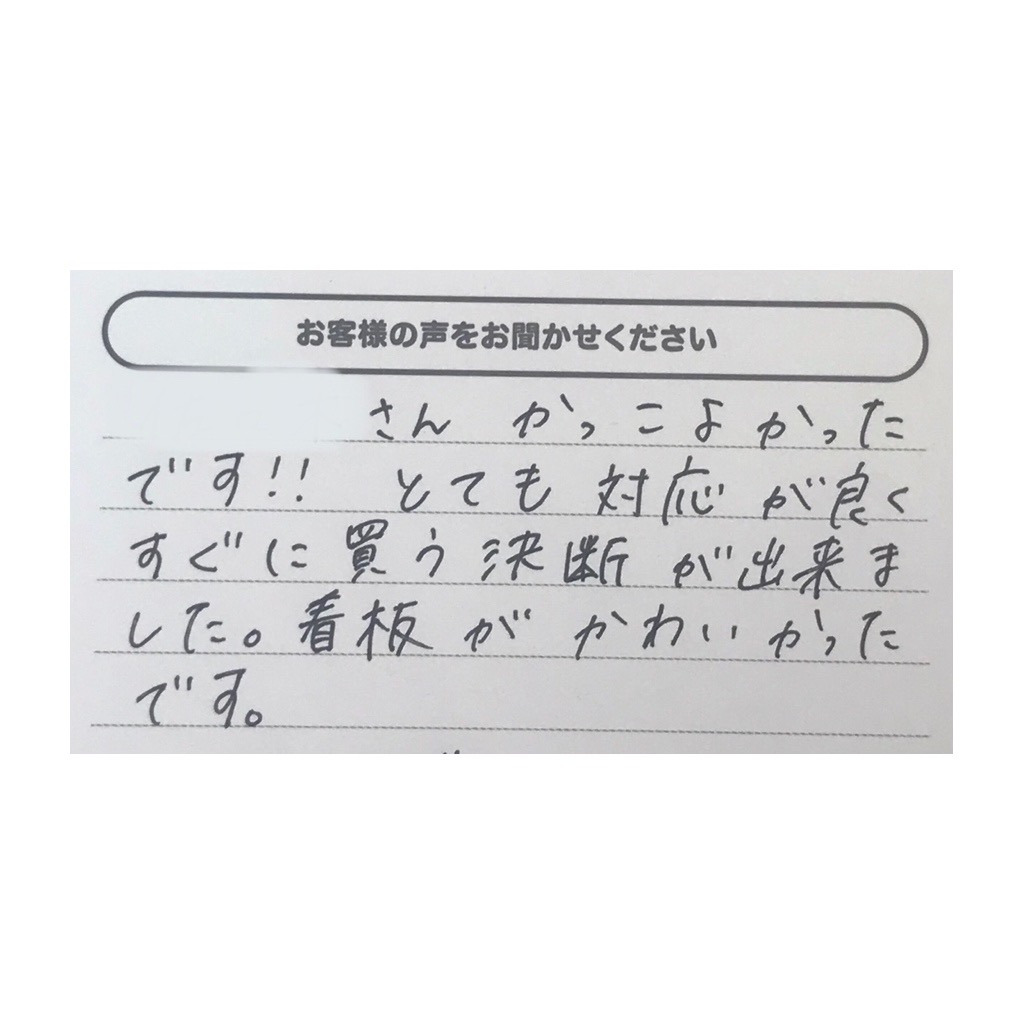 お客様の声をお聞かせください
さん かっこよかった
です!! とても対応が良く
すぐに買う決断が出来ま
した。看板がかわいかった
です。